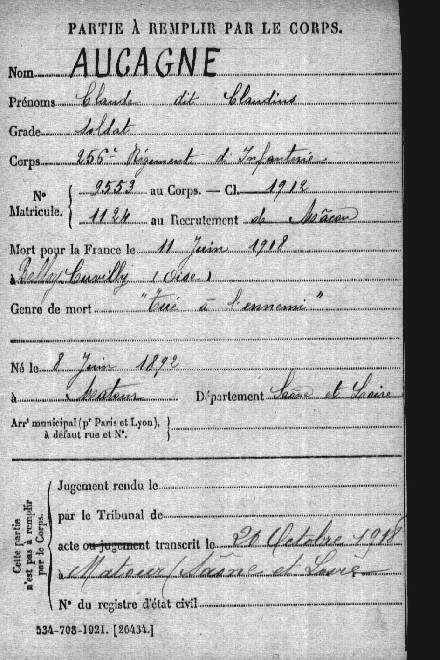 PARTIE À REMPLIR PAR LE CORPS.
Nom AUCAGNE
Prénoms Claude dit Claudius
Grade soldat
Corps 256e Régiment d'Infanterie
N° Matricule. { 9553 au Corps. — Cl. 1912
1124 au Recrutement de Mâcon
Mort pour la France le 11 Juin 1918
à Cuvilly (Oise)
Genre de mort "tué à l'ennemi"
Né le 8 Juin 1892
à Matour Département Saône et Loire
Arrt municipal (pr Paris et Lyon), à défaut rue et N°. }
Cette partie n'est pas à remplir par le Corps.
Jugement rendu le
par le Tribunal de
acte ou jugement transcrit le 20 Octobre 1918
à Matour (Saône et Loire
N° du registre d'état civil
534-708-1921. [26434.]